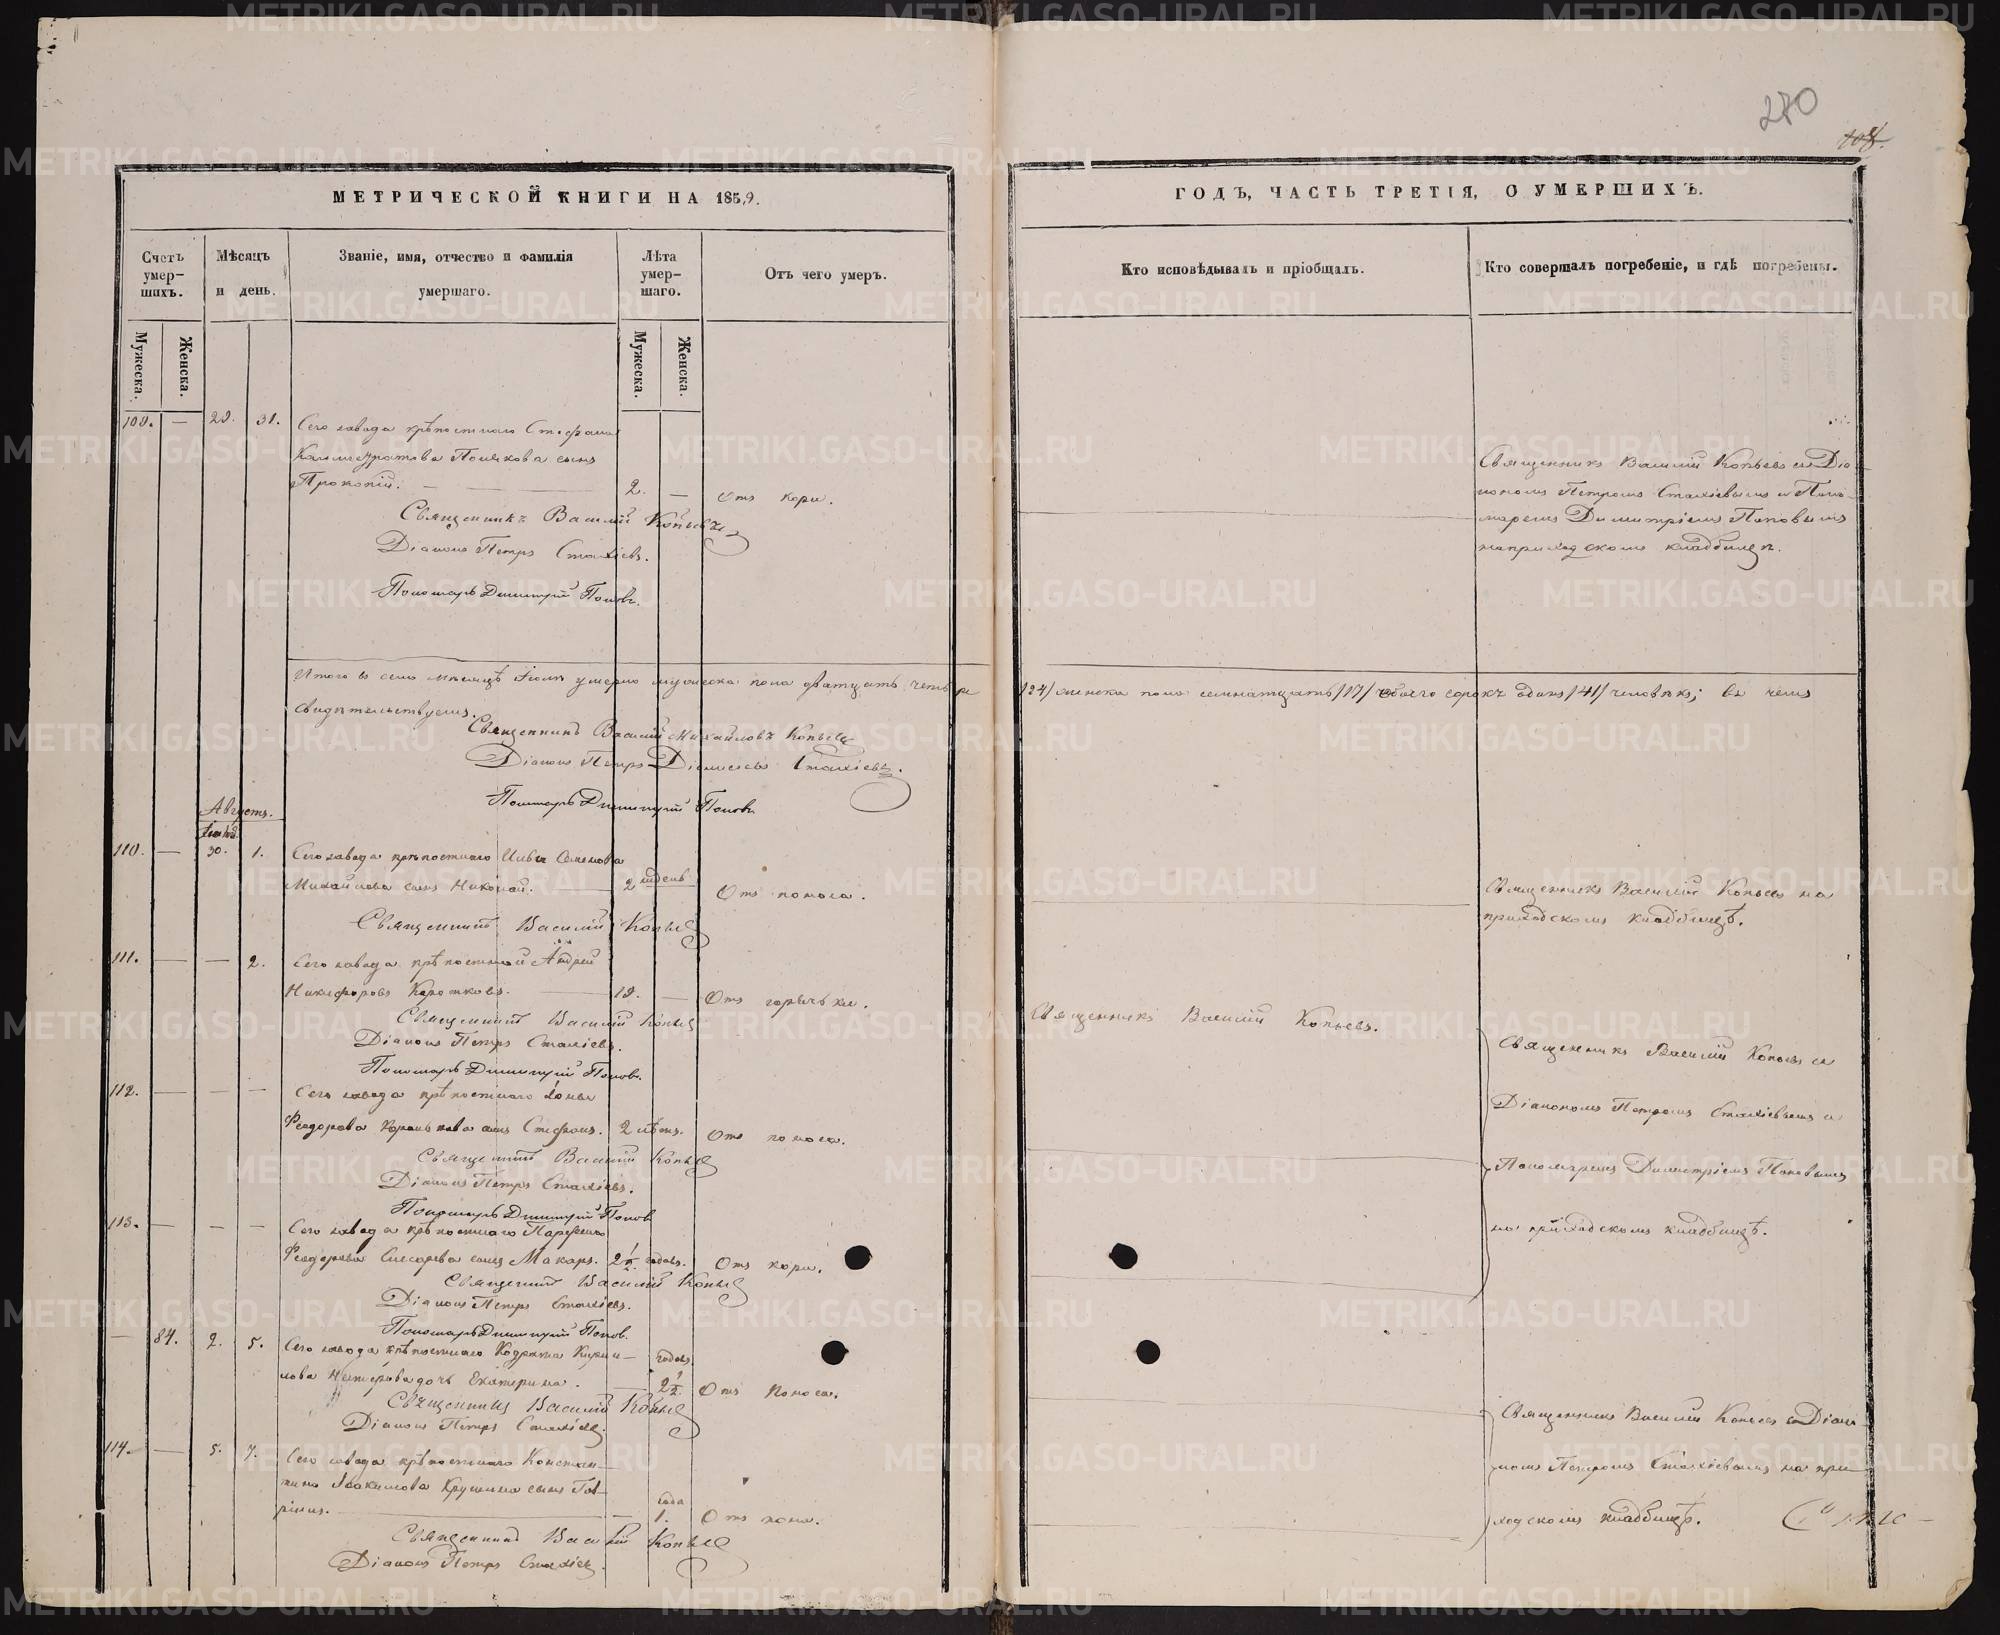 280
108.
МЕТРИЧЕСКОЙ КНИГИ НА 1859.
ГОДЪ, ЧАСТЬ ТРЕТІЯ, О УМЕРШИХЪ.
Счетъ умер-шихъ.
Мѣсяцъ и день.
Званіе, имя, отчество и фамилія умершаго.
Лѣта умер-шаго.
Отъ чего умеръ.
Кто исповѣдывалъ и пріобщалъ.
Кто совершалъ погребеніе, и гдѣ погребены.
Мужеска.
Женска.
Мужеска.
Женска.
29. 31. Сего завода крѣпостнаго Стефана
Прокопій. 2. — Отъ кори.
Священникъ Василій Копьевъ
Діаконъ Петръ Стахіевъ.
Пономарь Димитрій Поповъ.
Священникъ Василій Копьевъ съ Діа-
кономъ Петромъ Стахіевымъ и Поно-
маремъ Димитріемъ Поповымъ
на приходскомъ кладбищѣ.
Итого въ семъ мѣсяцѣ Іюлѣ умерло мужеска пола дватцать четыре
/24/ женска пола семнатцать /17/ обоего сорокъ одинъ /41/ человѣкъ; въ чемъ
свидѣтельствуемъ.
Священникъ Василій Михайловъ Копьевъ
Діаконъ Петръ Стахіевъ.
Пономарь Димитрій Поповъ
Августъ.
110. — 30. 1. Сего завода крѣпостнаго Семенова
Михайлова сынъ Николай. 2 Отъ поноса.
Священникъ Василій Копьевъ
Священникъ Василій Копьевъ на
приходскомъ кладбищѣ.
111. — — 2. Сего завода крѣпостной Андрей
Никифоровъ Коротковъ. 19. — Отъ горячки.
Священникъ Василій Копьевъ
Діаконъ Петръ Стахіевъ.
Пономарь Димитрій Поповъ.
Священникъ Василій Копьевъ.
Священникъ Василій Копьевъ съ
Діакономъ Петромъ Стахіевымъ и
Пономаремъ Димитріемъ Поповымъ
на приходскомъ кладбищѣ.
112. — — — Сего завода крѣпостнаго
Феодорова сынъ Стефанъ. 2 лѣтъ. Отъ поноса.
Священникъ Василій Копьевъ
Діаконъ Петръ Стахіевъ.
Пономарь Димитрій Поповъ
113. — — — Сего завода крѣпостнаго Парфена
Феодорова Слесарева сынъ Макаръ. 2 1/2 годовъ. Отъ кори.
Священникъ Василій Копьевъ
Діаконъ Петръ Стахіевъ.
Пономарь Димитрій Поповъ.
— 84. 2. 5. Сего завода крѣпостнаго Кодрата Кирил-
лова дочь Екатерина. годовъ 2 1/2 Отъ поноса.
Священникъ Василій Копьевъ
Діаконъ Петръ Стахіевъ
Священникъ Василій Копьевъ съ Діако-
номъ Петромъ Стахіевымъ на при-
ходскомъ кладбищѣ.
114. — 5. 7. Сего завода крѣпостнаго Констан-
тина Іоакимова Крушина сынъ Гав-
ріилъ. года 1. Отъ
Священникъ Василій Копьевъ
Діаконъ Петръ Стахіевъ
METRIKI.GASO-URAL.RU